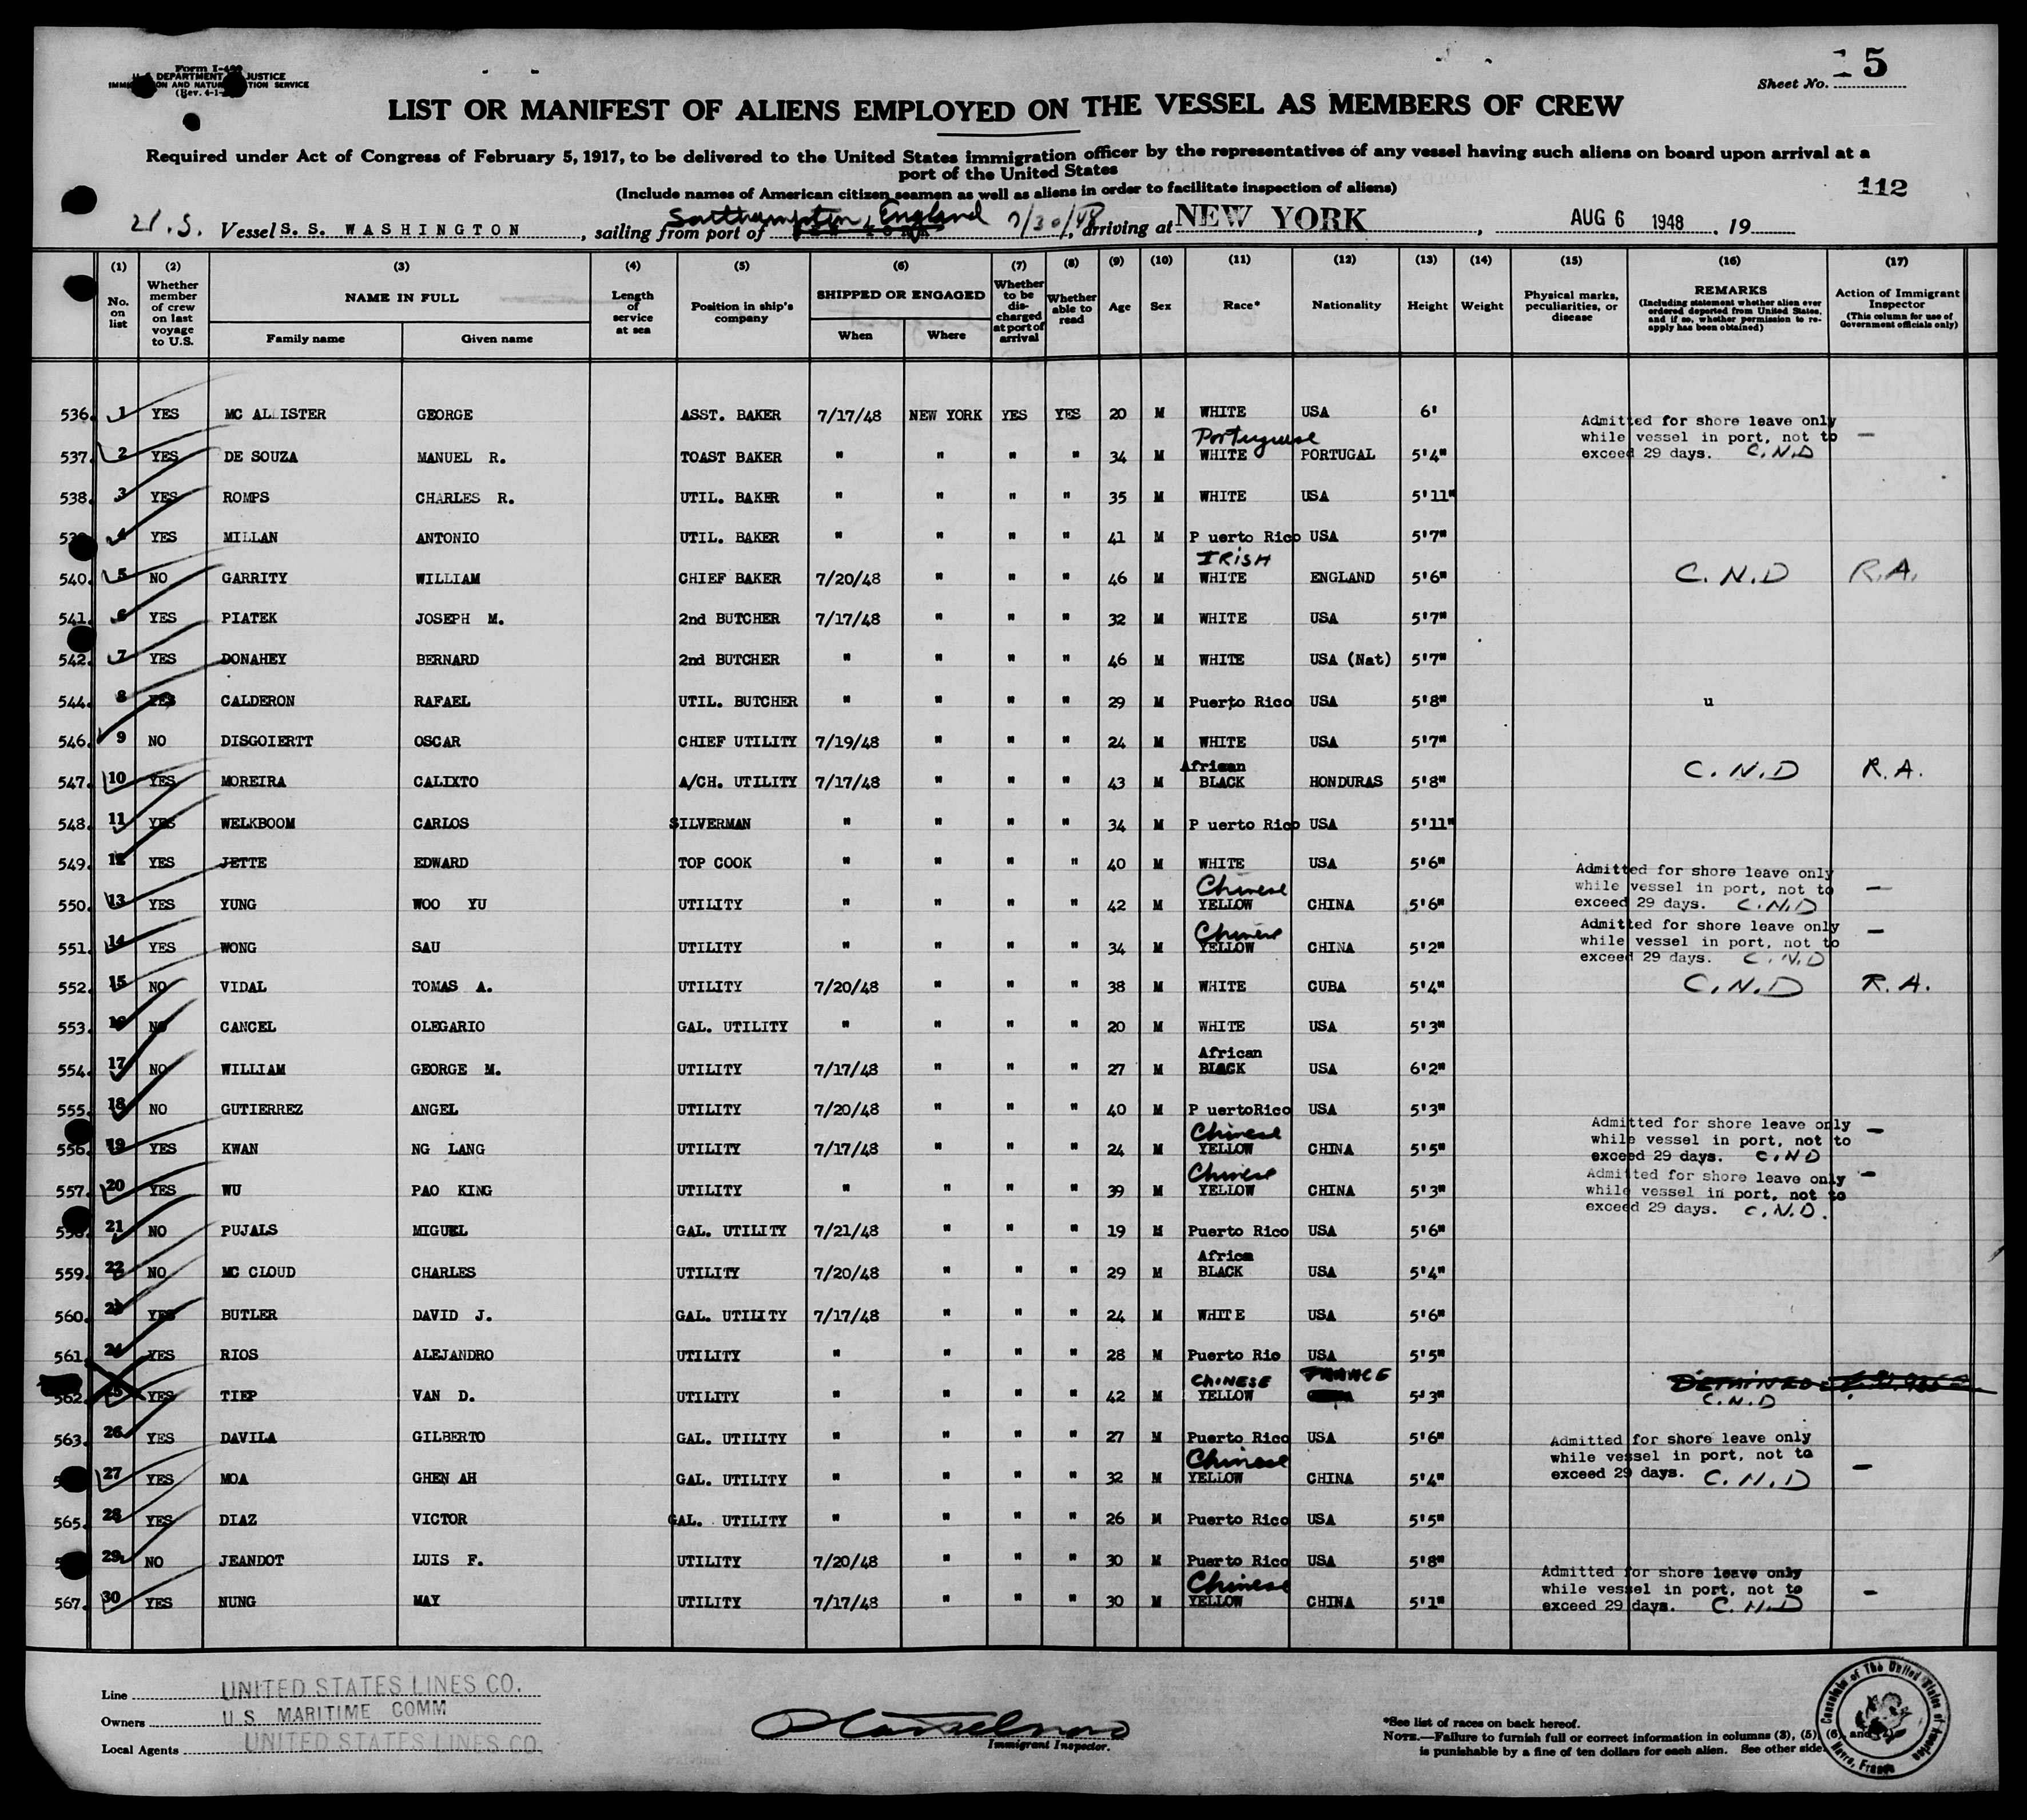 Form I-489
U. S. DEPARTMENT OF JUSTICE
IMMIGRATION AND NATURALIZATION SERVICE
(Rev. 4-1-
Sheet No. 15
LIST OR MANIFEST OF ALIENS EMPLOYED ON THE VESSEL AS MEMBERS OF CREW
Required under Act of Congress of February 5, 1917, to be delivered to the United States immigration officer by the representatives of any vessel having such aliens on board upon arrival at a
port of the United States
112
(Include names of American citizen seamen as well as aliens in order to facilitate inspection of aliens)
U.S. Vessel S. S. WASHINGTON, sailing from port of Southampton, England 7/30/48, arriving at NEW YORK, AUG 6 1948, 19
(1) (2) (3) (4) (5) (6) (7) (8) (9) (10) (11) (12) (13) (14) (15) (16) (17)
No. on list Whether member of crew on last voyage to U.S. NAME IN FULL Family name Given name Length of service at sea Position in ship's company SHIPPED OR ENGAGED When Where Whether to be discharged at port of arrival Whether able to read Age Sex Race* Nationality Height Weight Physical marks, peculiarities, or disease REMARKS (Including statement whether alien ever ordered deported from United States, and if so, whether permission to reapply has been obtained) Action of Immigrant Inspector (This column for use of Government officials only)
536. 1 YES MC ALLISTER GEORGE ASST. BAKER 7/17/48 NEW YORK YES YES 20 M WHITE USA 6'
537. 2 YES DE SOUZA MANUEL R. TOAST BAKER " " " " 34 M Portuguese WHITE PORTUGAL 5'4" Admitted for shore leave only while vessel in port, not to exceed 29 days. C.N.D —
538. 3 YES ROMPS CHARLES R. UTIL. BAKER " " " " 35 M WHITE USA 5'11"
539. 4 YES MILLAN ANTONIO UTIL. BAKER " " " " 41 M P uerto Rico USA 5'7"
540. 5 NO GARRITY WILLIAM CHIEF BAKER 7/20/48 " " " 46 M IRISH WHITE ENGLAND 5'6" C.N.D R.A.
541. 6 YES PIATEK JOSEPH M. 2nd BUTCHER 7/17/48 " " " 32 M WHITE USA 5'7"
542. 7 YES DONAHEY BERNARD 2nd BUTCHER " " " " 46 M WHITE USA (Nat) 5'7"
544. 8 YES CALDERON RAFAEL UTIL. BUTCHER " " " " 29 M Puerto Rico USA 5'8" u
546. 9 NO DISGOIERTT OSCAR CHIEF UTILITY 7/19/48 " " " 24 M WHITE USA 5'7"
547. 10 YES MOREIRA CALIXTO A/CH. UTILITY 7/17/48 " " " 43 M African BLACK HONDURAS 5'8" C.N.D R.A.
548. 11 YES WELKBOOM CARLOS SILVERMAN " " " " 34 M P uerto Rico USA 5'11"
549. 12 YES JETTE EDWARD TOP COOK " " " " 40 M WHITE USA 5'6"
550. 13 YES YUNG WOO YU UTILITY " " " " 42 M Chinese YELLOW CHINA 5'6" Admitted for shore leave only while vessel in port, not to exceed 29 days. C.N.D —
551. 14 YES WONG SAU UTILITY " " " " 34 M Chinese YELLOW CHINA 5'2" Admitted for shore leave only while vessel in port, not to exceed 29 days. C.N.D —
552. 15 NO VIDAL TOMAS A. UTILITY 7/20/48 " " " 38 M WHITE CUBA 5'4" C.N.D R.A.
553. 16 NO CANCEL OLEGARIO GAL. UTILITY " " " " 20 M WHITE USA 5'3"
554. 17 NO WILLIAM GEORGE M. UTILITY 7/17/48 " " " 27 M African BLACK USA 6'2"
555. 18 NO GUTIERREZ ANGEL UTILITY 7/20/48 " " " 40 M P uertoRico USA 5'3"
556. 19 YES KWAN NG LANG UTILITY 7/17/48 " " " 24 M Chinese YELLOW CHINA 5'5" Admitted for shore leave only while vessel in port, not to exceed 29 days. C.N.D —
557. 20 YES WU PAO KING UTILITY " " " " 39 M Chinese YELLOW CHINA 5'3" Admitted for shore leave only while vessel in port, not to exceed 29 days. C.N.D. —
558. 21 NO PUJALS MIGUEL GAL. UTILITY 7/21/48 " " " 19 M Puerto Rico USA 5'6"
559. 22 NO MC CLOUD CHARLES UTILITY 7/20/48 " " " 29 M Africa BLACK USA 5'4"
560. 23 YES BUTLER DAVID J. GAL. UTILITY 7/17/48 " " " 24 M WHITE USA 5'6"
561. 24 YES RIOS ALEJANDRO UTILITY " " " " 28 M Puerto Rio USA 5'5"
562. 25 YES TIEP VAN D. UTILITY " " " " 42 M CHINESE YELLOW FRANCE 5'3" DETAINED C.N.D
563. 26 YES DAVILA GILBERTO GAL. UTILITY " " " " 27 M Puerto Rico USA 5'6"
27 YES MOA GHEN AH GAL. UTILITY " " " " 32 M Chinese YELLOW CHINA 5'4" Admitted for shore leave only while vessel in port, not to exceed 29 days. C.N.D —
565. 28 YES DIAZ VICTOR GAL. UTILITY " " " " 26 M Puerto Rico USA 5'5"
29 NO JEANDOT LUIS F. UTILITY 7/20/48 " " " 30 M Puerto Rico USA 5'8"
567. 30 YES NUNG MAY UTILITY 7/17/48 " " " 30 M Chinese YELLOW CHINA 5'1" Admitted for shore leave only while vessel in port, not to exceed 29 days. C.N.D —
Line UNITED STATES LINES CO.
Owners U.S. MARITIME COMM
Local Agents UNITED STATES LINES CO
Immigrant Inspector.
*See list of races on back hereof.
NOTE.—Failure to furnish full or correct information in columns (3), (5), (6), and (7) is punishable by a fine of ten dollars for each alien. See other side.
Consulate of The United States of America
Havre, France